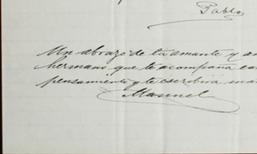 Pablo
Un abrazo de tu amante y
hermano que te acompaña
pensamiento y te escribirá
Manuel